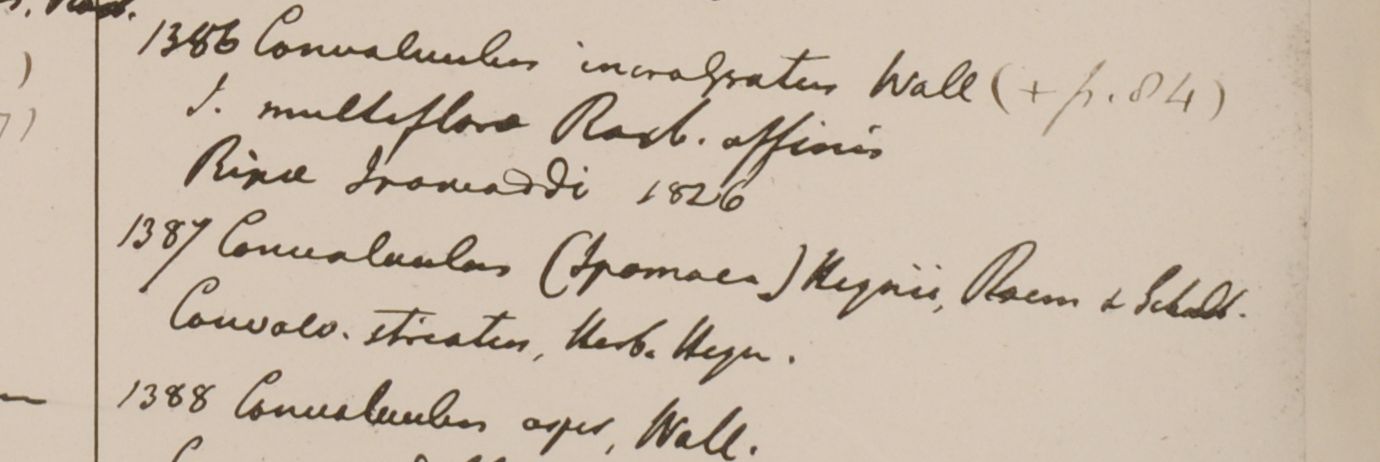 1386 Convolvulus incrassatus Wall (+ p. 84)
I. multiflora Roxb. affinis
Ripae Irawaddi 1826
1387 Convolvulus (Ipomaea) Heynii, Roem & Schult.
Convolv. striatus, Herb. Heyn.
1388 Convolvulus asper, Wall.